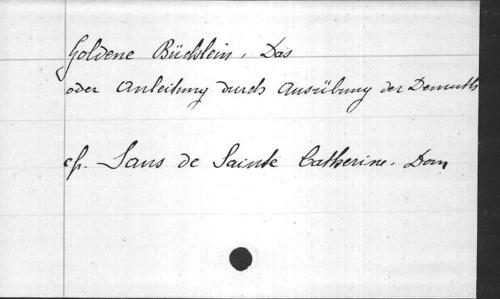 Goldene Büchlein, Das
oder Anleitung durch Ausübung der Demuth
cf. Sans de Sainte Catherine. Dom